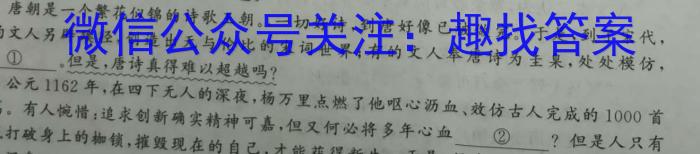 唐朝是一个繁花似锦的诗歌王朝。一切好诗,到唐好像已
微信公众号关注:趣找答案
的文人另 词世界,有的文人奉唐诗为圭臬,处处模仿,
①。但是,唐诗真得难以超越吗?
公元1162年,在四下无人的深夜,杨万里点燃了他呕心沥血、效仿古人完成的1000首
。有人惋惜:追求创新确实精神可嘉,但又何必将多年心血②?但是人只有
打破身上的枷锁,摧毁现在的自己,才能获得新生